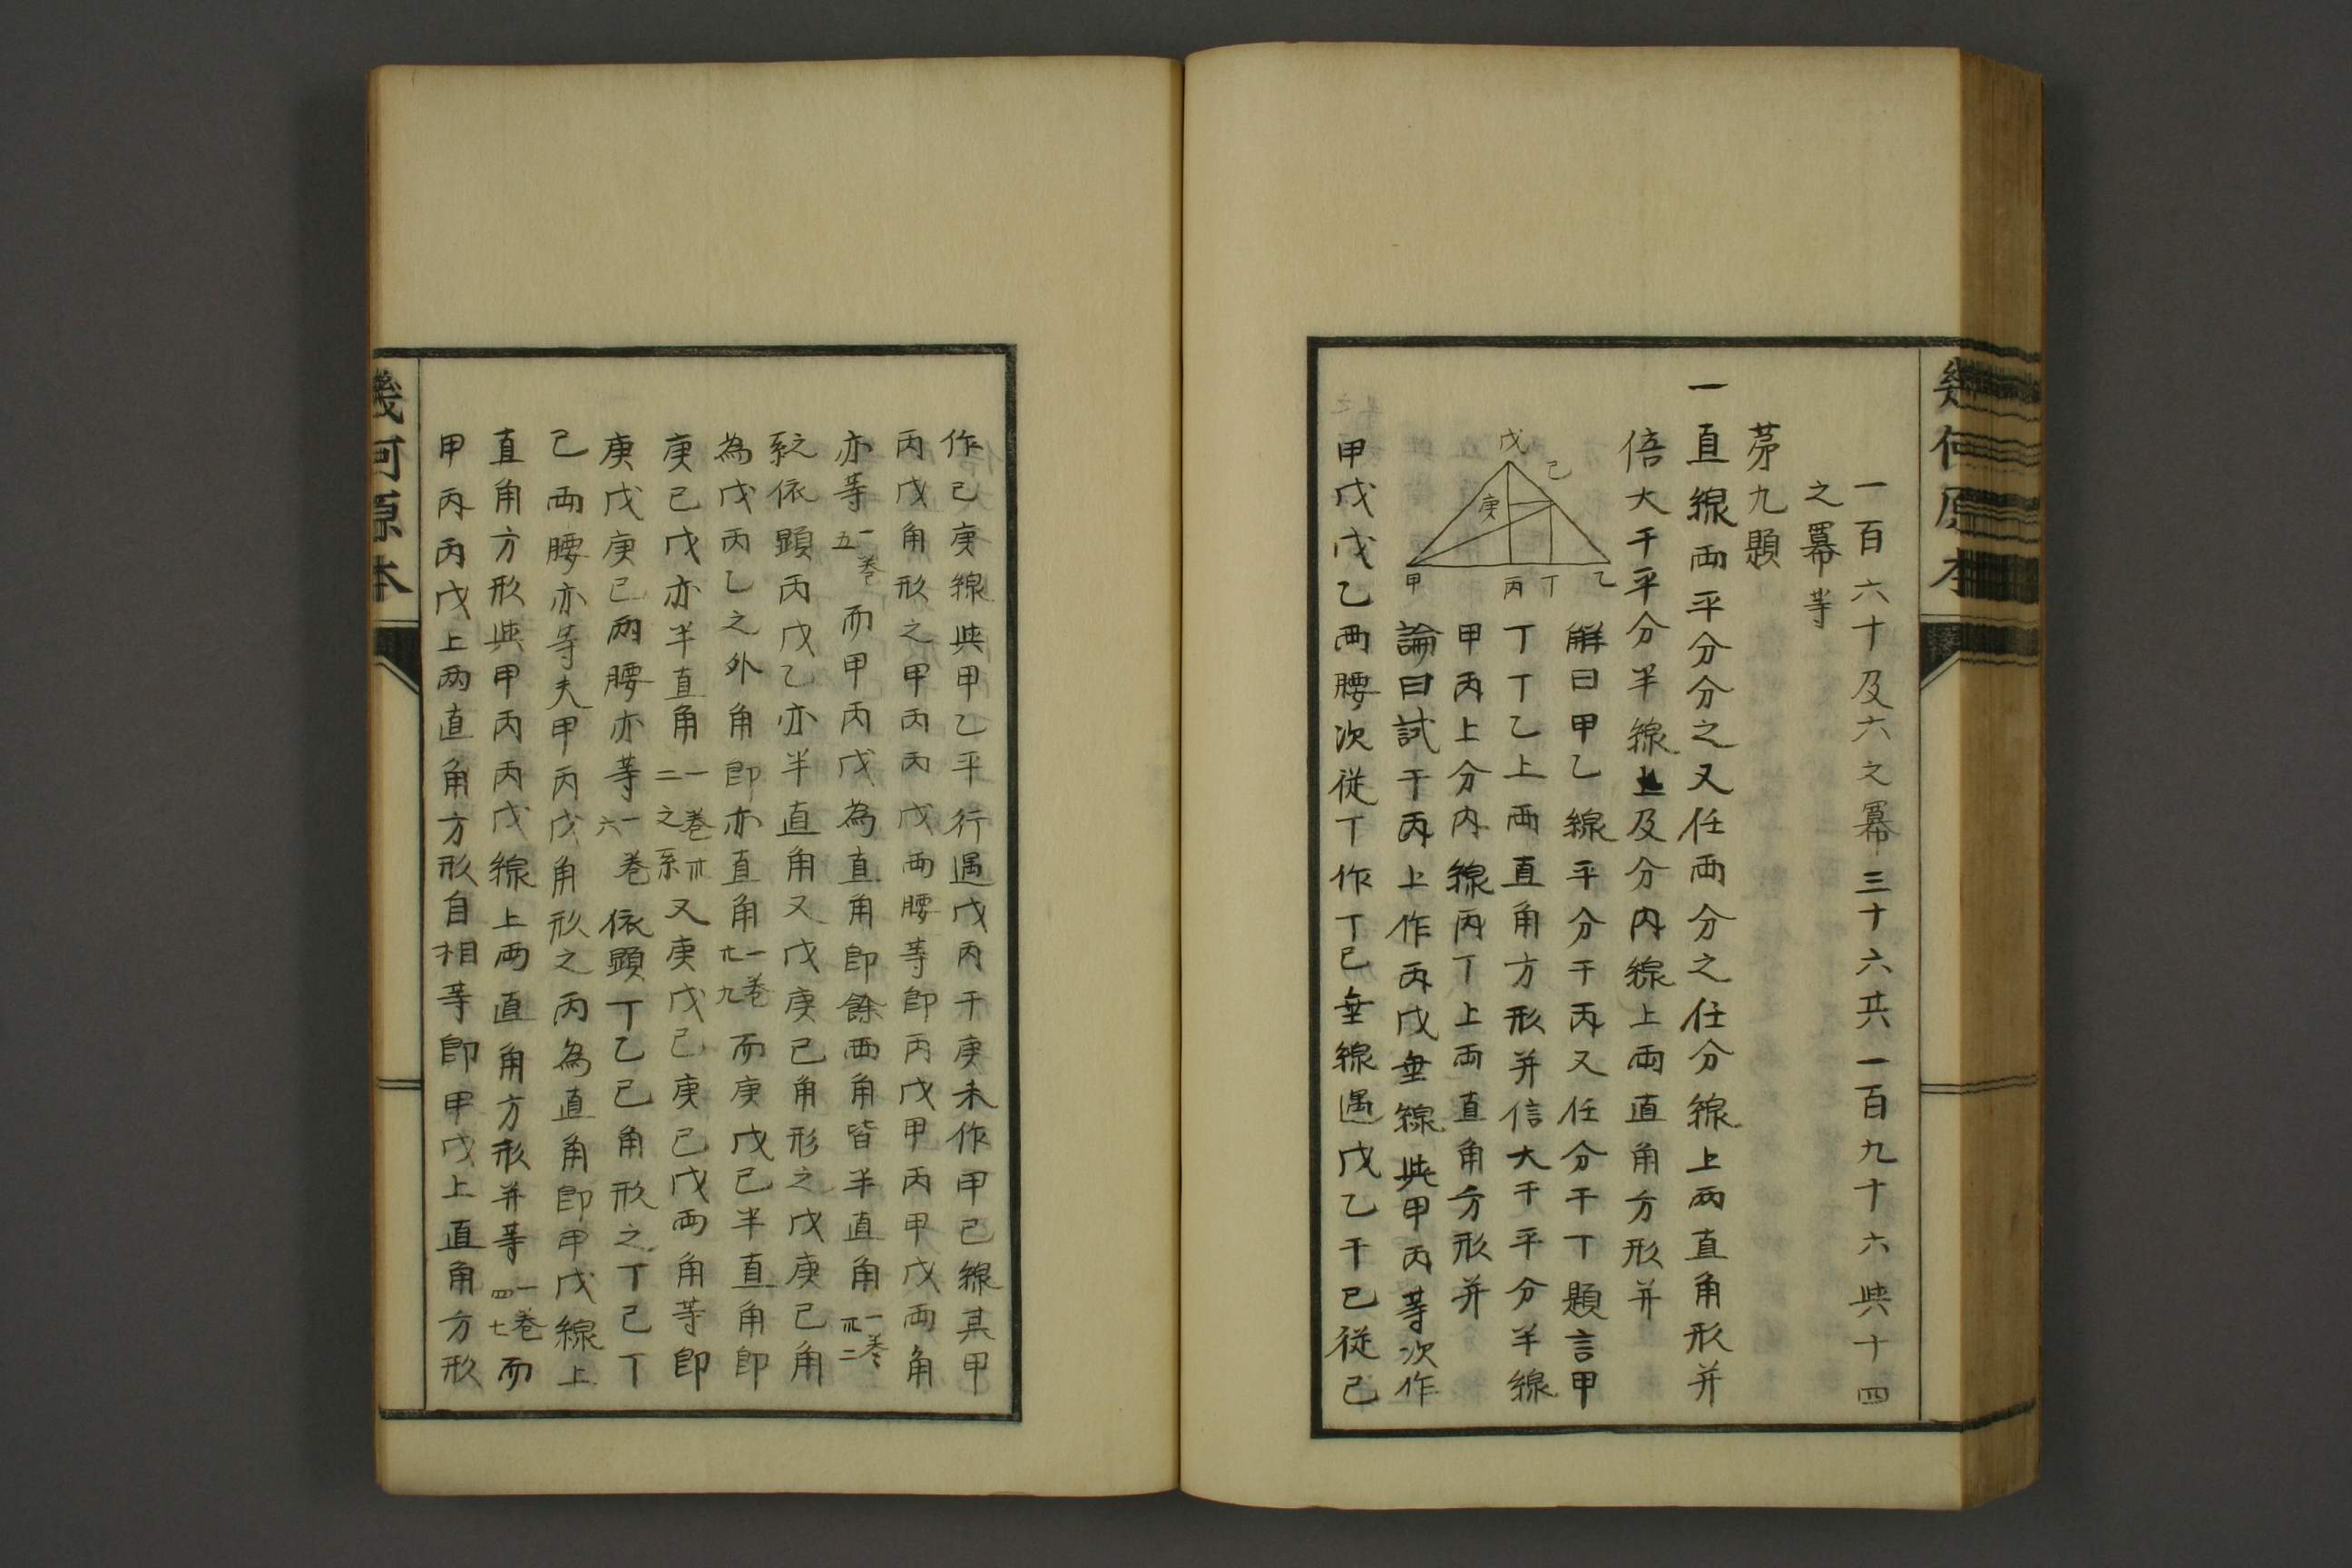 幾何原本
一百六十及六之冪三十六共一百九十六與十四
之冪等
苐九題
一直線兩平分分之又任兩分之任分線上兩直角形并
倍大于平分半線上及分內線上兩直角方形并
戊
己
庚
甲
丙
丁
乙
解曰甲乙線平分于丙又任分于丁題言甲
丁丁乙上兩直角方形并信大于平分半線
甲丙上分內線丙丁上兩直角方形并
論曰試于丙上作丙戊垂線與甲丙等次作
甲戊戊乙兩腰次從丁作丁己垂線遇戊乙于己從己
作己庚線與甲乙平行遇戊丙于庚未作甲己線其甲
丙戊角形之甲丙丙戊兩腰等即丙戊甲丙甲戊兩角
亦等一卷五而甲丙戊為直角即餘兩角皆半直角一卷卅二
依顯丙戊乙亦半直角又戊庚己角形之戊庚己角
為戊丙乙之外角即亦直角一卷廿九而庚戊己半直角即
庚己戊亦半直角一卷卅二之系又庚戊己庚己戊兩角等即
庚戊庚己兩腰亦等一卷六依顯丁乙己角形之丁己丁
己兩腰亦等夫甲丙戊角形之丙為直角即甲戊線上
直角方形與甲丙丙戊線上兩直角方形并等一卷四七而
甲丙丙戊上兩直角方形自相等即甲戊上直角方形
幾何原本